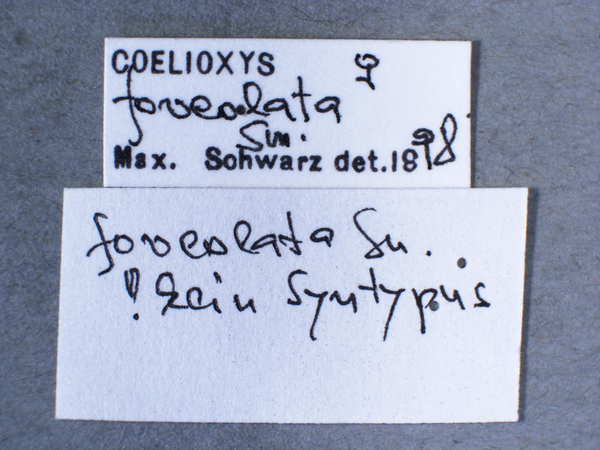 COELIOXYS ♀
foveolata
Sm.
Max. Schwarz det.1898
foveolata Sm.
! kein Syntypus